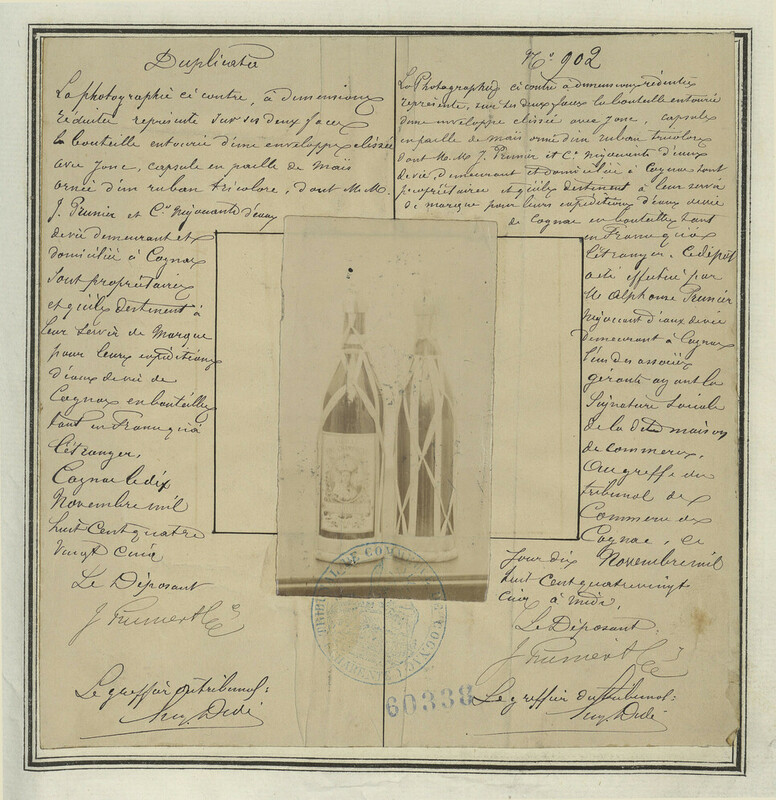 Duplicata
La photographie ci contre, à dimensions
réduites représente sur ses deux faces
la bouteille entourée d'une enveloppe clissée
avec jonc, capsule en paille de Maïs
ornée d'un ruban tricolore, dont M.M.
J. Prunier et Cie Négociants d'eaux
de vie demeurant et
domiciliés à Cognac
sont propriétaires
et qu'ils destinent à
leur servir de Marque
pour leurs expéditions
d'eaux de vie de
Cognac en bouteilles
tant en France qu'à
l'étranger.
Cognac le dix
Novembre mil
huit cent quatre
vingt cinq
Le Déposant
J Prunier & Cie
Le greffier du tribunal:
No. 902
La Photographie ci contre à dimensions réduites
représente, sur ses deux faces la bouteille entourée
d'une enveloppe clissée avec jonc, capsule
en paille de maïs ornée d'un ruban tricolore
dont M.M. J. Prunier et Cie Négociants d'eaux
de vie, demeurant et domiciliés à Cognac sont
propriétaires et qu'ils destinent à leur servir
de marque pour leurs expéditions d'eaux de vie
de Cognac en bouteilles tant
en France qu'à
l'étranger. Ce dépôt
a été effectué par
M. Alphonse Prunier
Négociant d'eaux de vie
demeurant à Cognac
l'un des associés
gérants ayant la
Signature Sociale
de la dite maison
de commerce.
Au greffe du
tribunal de
Commerce de
Cognac, ce
jour dix Novembre mil
huit cent quatre vingt
cinq à midi.
Le Déposant
J Prunier & Cie
Le greffier du tribunal:
TRIBUNAL DE COMMERCE DE COGNAC
CHARENTE
60338